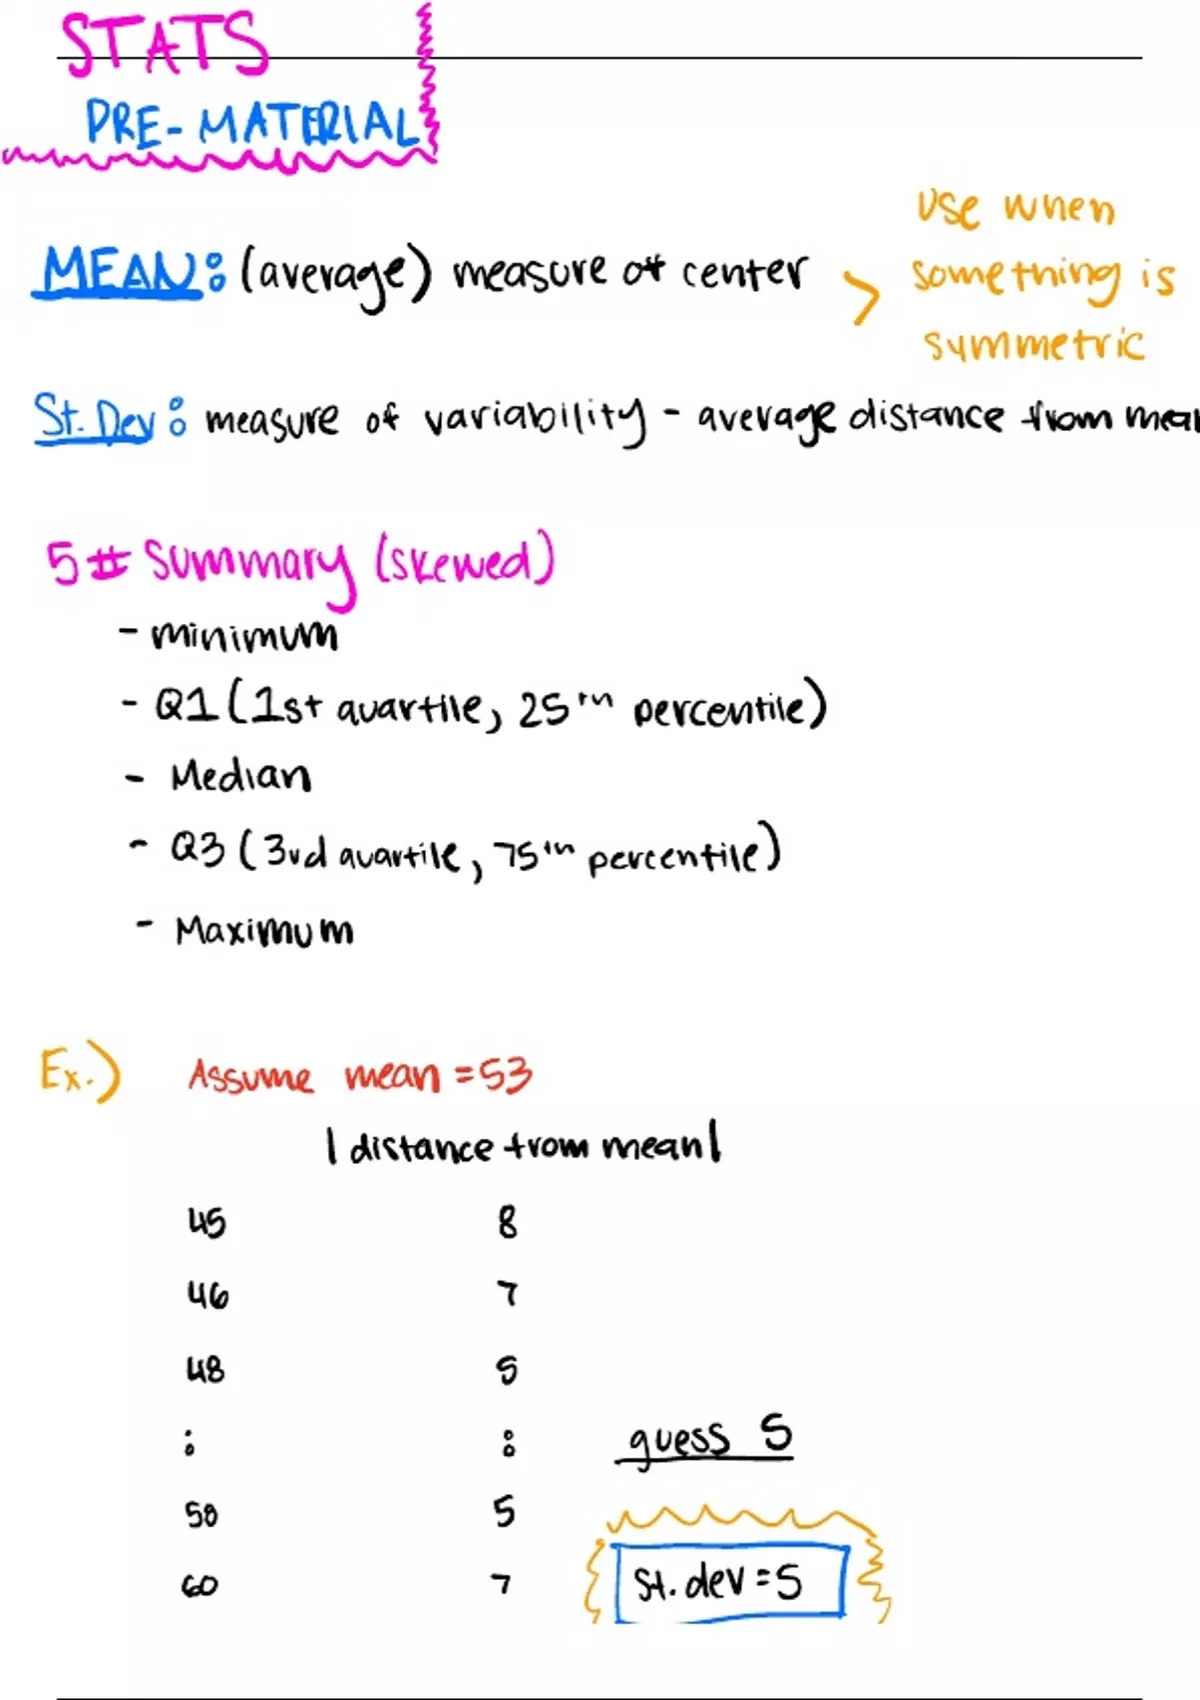 STATS
PRE-MATERIAL
MEAN: (average) measure of center > use when something is symmetric
St. Dev: measure of variability - average distance from mean
5# Summary (skewed)
- minimum
- Q1 (1st quartile, 25th percentile)
- Median
- Q3 (3rd quartile, 75th percentile)
- Maximum
Ex.) Assume mean = 53
| distance from mean |
45 8
46 7
48 5
: :
guess 5
58 5
60 7
St. dev = 5